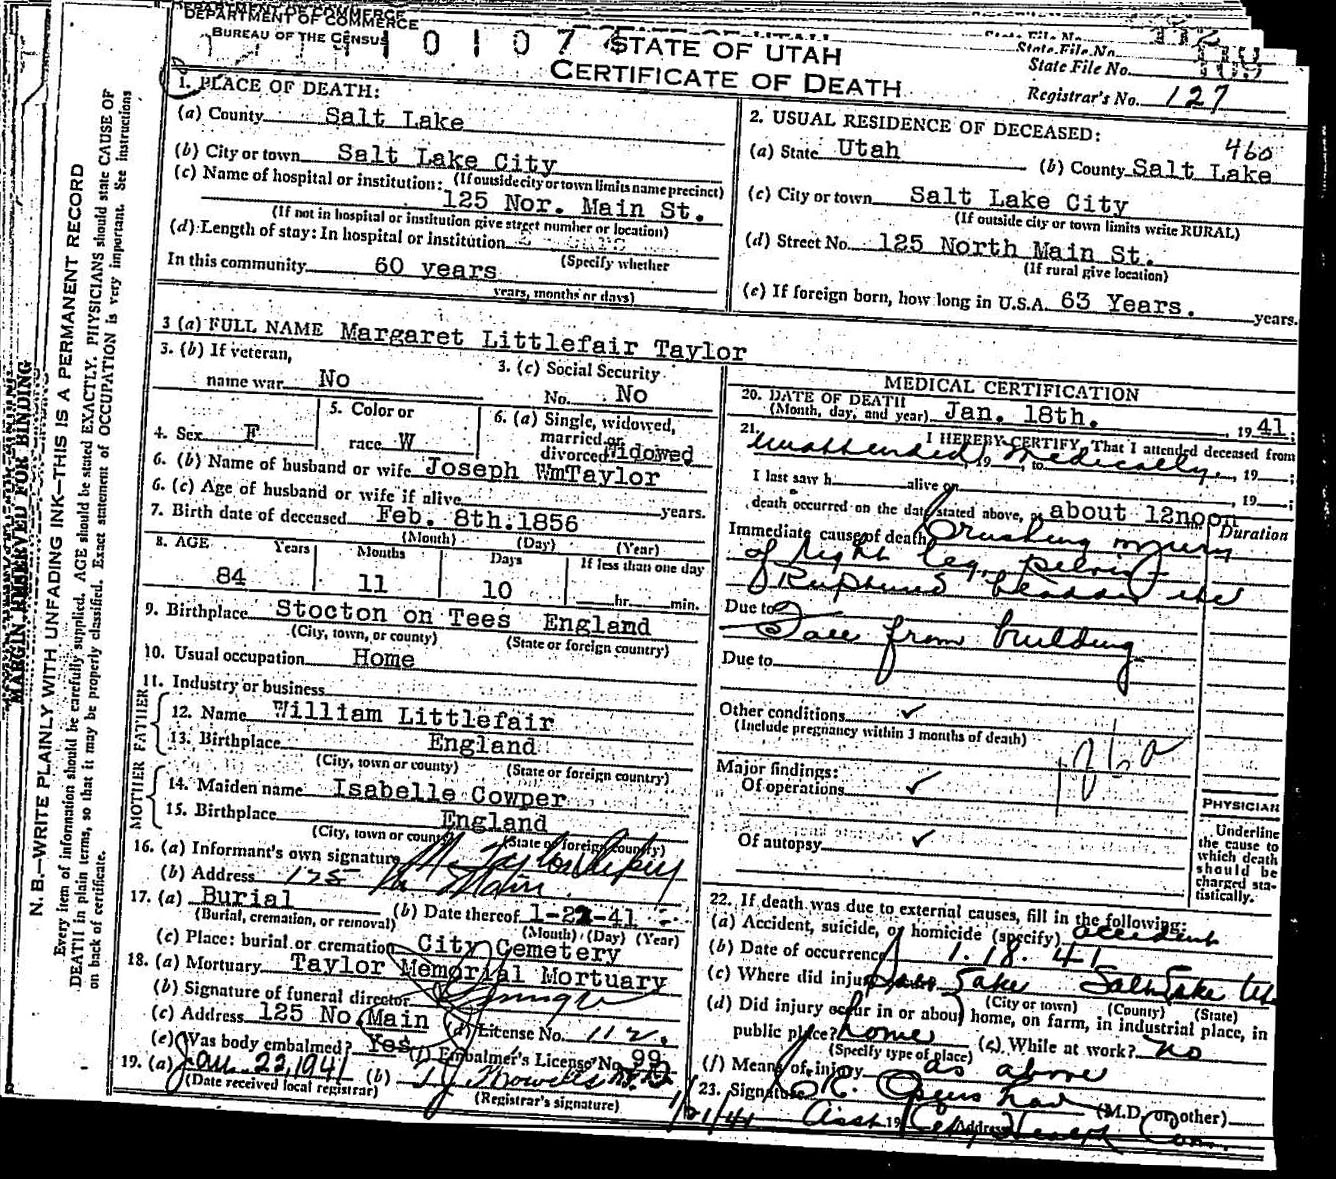 DEPARTMENT OF COMMERCE
BUREAU OF THE CENSUS
STATE OF UTAH
CERTIFICATE OF DEATH
State File No.
Registrar's No. 127
1. PLACE OF DEATH:
(a) County Salt Lake
(b) City or town Salt Lake City
(If outside city or town limits name precinct)
(c) Name of hospital or institution:
125 Nor. Main St.
(If not in hospital or institution give street number or location)
(d) Length of stay: In hospital or institution
(Specify whether
In this community 60 years
years, months or days)
2. USUAL RESIDENCE OF DECEASED:
460
(a) State Utah (b) County Salt Lake
(c) City or town Salt Lake City
(If outside city or town limits write RURAL)
(d) Street No. 125 North Main St.
(If rural give location)
(e) If foreign born, how long in U.S.A. 63 Years. years.
3 (a) FULL NAME Margaret Littlefair Taylor
3. (b) If veteran,
name war No
3. (c) Social Security
No. No
4. Sex F
5. Color or
race W
6. (a) Single, widowed,
married or
divorced Widowed
6. (b) Name of husband or wife Joseph WmTaylor
6. (c) Age of husband or wife if alive years.
7. Birth date of deceased Feb. 8th.1856
(Month) (Day) (Year)
8. AGE Years Months Days If less than one day
84 11 10 hr. min.
9. Birthplace Stocton on Tees England
(City, town, or county) (State or foreign country)
10. Usual occupation Home
11. Industry or business
FATHER
12. Name William Littlefair
13. Birthplace England
(City, town or county) (State or foreign country)
MOTHER
14. Maiden name Isabelle Cowper
15. Birthplace England
(City, town or county) (State or foreign country)
16. (a) Informant's own signature
(b) Address 125 N. Main
17. (a) Burial (b) Date thereof 1-22-41
(Burial, cremation, or removal) (Month) (Day) (Year)
(c) Place: burial or cremation City Cemetery
18. (a) Mortuary Taylor Memorial Mortuary
(b) Signature of funeral director
(c) Address 125 No. Main (d) License No. 112
(e) Was body embalmed? Yes (f) Embalmer's License No. 99
19. (a) Jan. 22, 1941 (b)
(Date received local registrar) (Registrar's signature)
MEDICAL CERTIFICATION
20. DATE OF DEATH
(Month, day, and year) Jan. 18th. , 19 41;
21. I HEREBY CERTIFY, That I attended deceased from
unattended medically , 19 , to , 19 ;
I last saw h alive on , 19 ;
death occurred on the date stated above, at about 12noon
Immediate cause of death Crushing injury
of right leg, pelvis
& Ruptured bladder
Duration
Due to
Fall from building
Due to
Other conditions ✓
(Include pregnancy within 3 months of death)
Major findings:
Of operations ✓
Of autopsy ✓
PHYSICIAN
Underline
the cause to
which death
should be
charged sta-
tistically.
22. If death was due to external causes, fill in the following:
(a) Accident, suicide, or homicide (specify) accident
(b) Date of occurrence 1. 18. 41
(c) Where did injury occur? Salt Lake Salt Lake Ut
(City or town) (County) (State)
(d) Did injury occur in or about home, on farm, in industrial place, in
public place? home (e) While at work? no
(Specify type of place)
(f) Means of injury as above
23. Signature (M.D. or other)
1/21/41 Asst. City Health Com. Address
MARGIN RESERVED FOR BINDING
N. B.—WRITE PLAINLY WITH UNFADING INK—THIS IS A PERMANENT RECORD
Every item of information should be carefully supplied. AGE should be stated EXACTLY. PHYSICIANS should state CAUSE OF
DEATH in plain terms, so that it may be properly classified. Exact statement of OCCUPATION is very important. See instructions
on back of certificate.